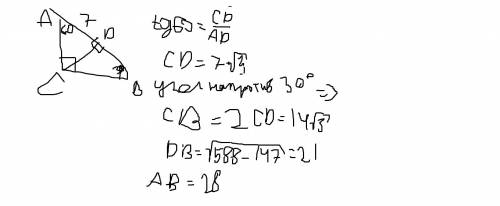 A 7
60 D
B
tg60 = CD/AD
CD = 7√3
угол напротив 30° =>
CB = 2CD = 14√3
DB = √588-147 = 21
AB = 28